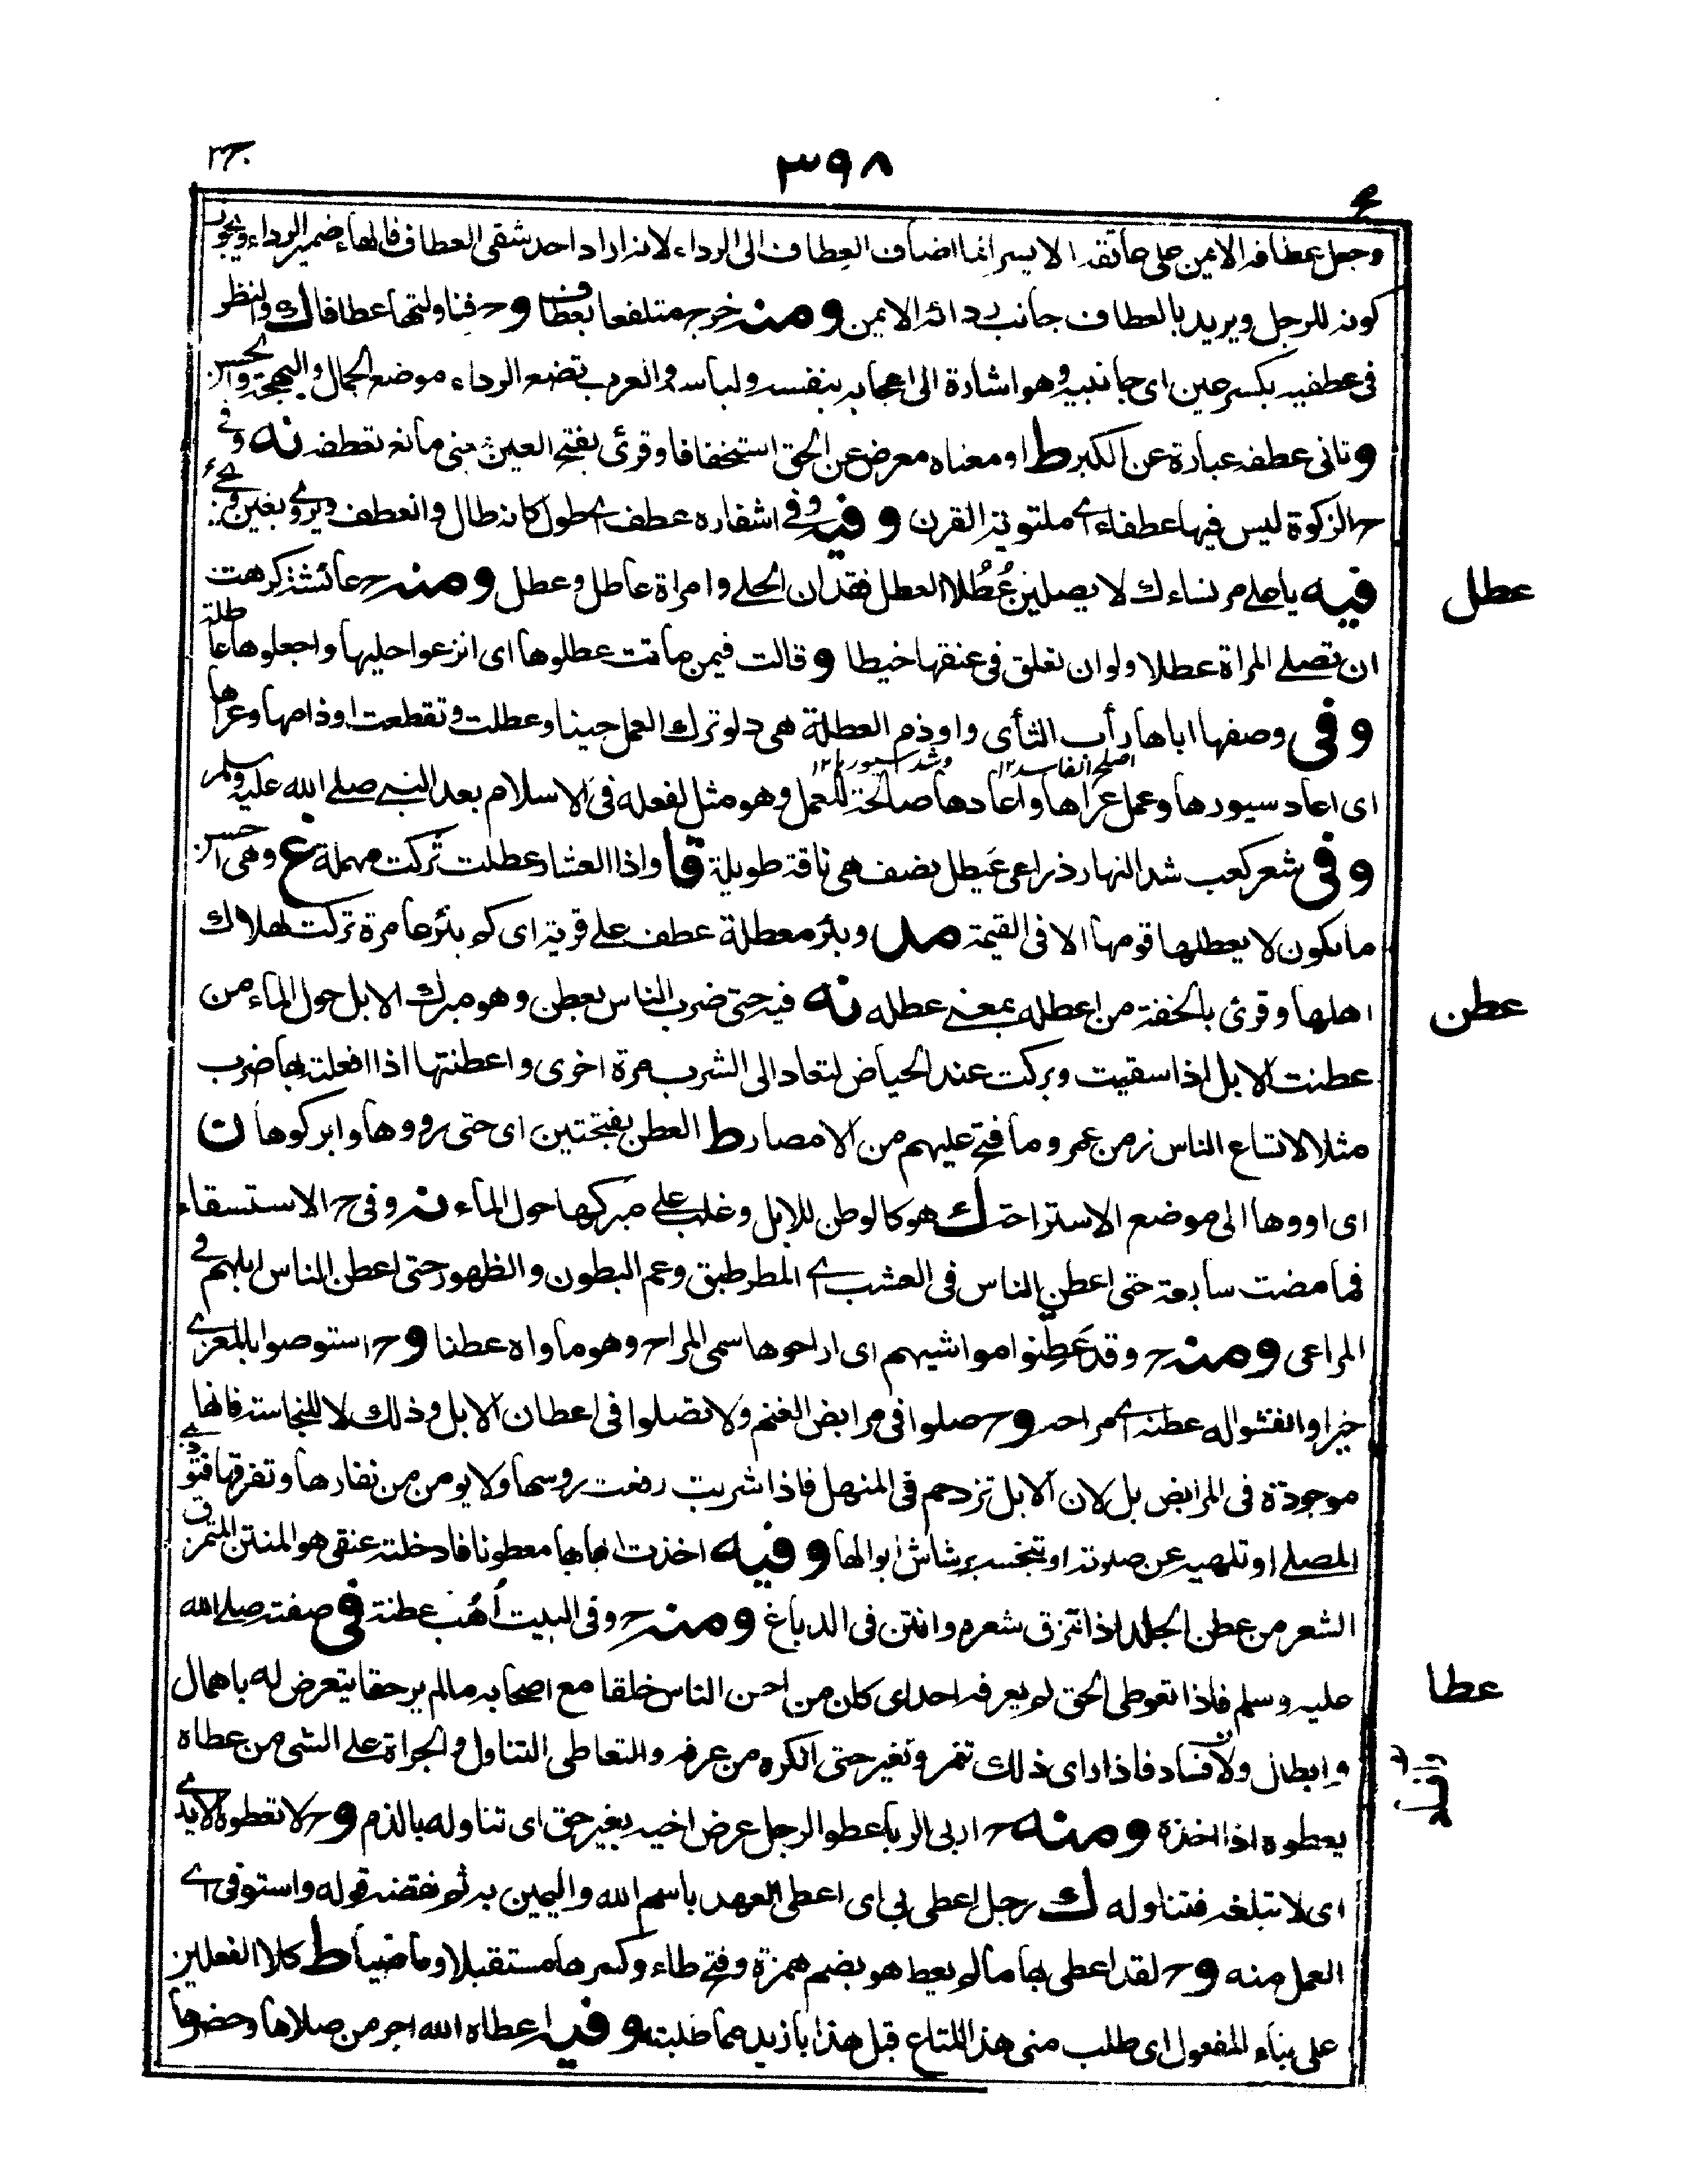 ٣٩٨
وجعل عطافه الايمن على عاتقه الايسر انما اضاف العطاف الى الرداء لانه اراد احد شقى العطاف فالهاء ضمير الرداء ويجوز
كونه للرجل ويريد بالعطاف جانب ردائه الايمن ومنه خرج متلفعا بعطاف وح فناولتها عطافا ك والنظر
فى عطفيه بكسر عين اى جانبيه وهو اشارة الى اعجابه بنفسه ولباسه والعرب تضع الرداء موضع الجمال والبهجة والحسن
وثانى عطفه عبارة عن الكبر ط او معناه معرض عن الحق استخفافا وقرئ بفتح العين بمعنى مانع تعطفه نه وفى
ح الزكوة ليس فيها عطفاء اى ملتوية القرن وفيه وفى اشفاره عطف اى طول كانه طال وانعطف ويروى بغين
فيه يا على مر نساءك لا يصلين عُطُلا العطل فقدان الحلى وامراة عاطل وعطل ومنه ح عائشة كرهت
ان تصلى المراة عطلا ولو ان تعلق فى عنقها خيطا وقالت فيمن ماتت عطلوها اى انزعوا حليها واجعلوها عاطلة
وفى وصفها اباها رأب الثأى واوذم العطلة هى دلو ترك العمل حينا وعطلت وتقطعت اوذامها وعراها
اصلح الفاسد ١٢ وشد سيور ١٢
اى اعاد سيورها وعمل عراها واعادها صالحة للعمل وهو مثل لفعله فى الاسلام بعد النبى صلى الله عليه وسلم
وفى شعر كعب شد النهار ذراعى عَيطل نصف هى ناقة طويلة قا واذا العشار عطلت تُركت مهملة غ وهى احسن
ما يكون لا يعطلها قومها الا فى القيمة مد وبئر معطلة عطف على قرية اى كم بئر عامرة تركت لهلاك
اهلها وقرئ بالخفة من اعطله بمعنى عطله نه فيه حتى ضرب الناس بعطن وهو مبرك الابل حول الماء من
عطنت الابل اذا سقيت وبركت عند الحياض لتعاد الى الشرب مرة اخرى واعطنتها اذا فعلته بها ضرب
مثلا لاتساع الناس زمن عمر وما فتح عليهم من الامصار ط العطن بفتحتين اى حتى رووها وابركوها ن
اى اووها الى موضع الاستراحة ك هو كالوطن للابل وغلب على مبركها حول الماء نه وفى ح الاستسقاء
فما مضت سابعة حتى اعطن الناس فى العشب اى المطر طبق وعم البطون والظهور حتى اعطن الناس ابلهم فى
المراعى ومنه ح وقد عَطنوا مواشيهم اى اراحوها سمى المراح وهو ماواه عطنا وح استوصوا بالمعزى
خيرا وانفشوا له عطنه اى مراحه وح صلوا فى مرابض الغنم ولا تصلوا فى اعطان الابل وذلك لا للنجاسة فانها
موجودة فى المرابض بل لان الابل تزدحم فى المنهل فاذا شربت رفعت روسها ولا يومن من نفارها وتفرقها فتوذى
المصلى او تلهيه عن صلوته او تنجسه برشاش ابوالها وفيه اخذت اهابا معطونا فادخلته عنقى هو المنتن المتمرق
الشعر من عطن الجلد اذا تمزق شعره وانتن فى الدباغ ومنه ح وفى البيت اُهُب عطنة فى صفته صلى الله
عليه وسلم فاذا تعوطى الحق لم يعرفه احد اى كان من احسن الناس خلقا مع اصحابه مالم ير حقا يتعرض له باهمال
وابطال ولافساد فاذا راى ذلك تنمر وتغير حتى انكره من عرفه والتعاطى التناول والجراة على الشى من عطاه
يعطوه اذا اخذه ومنه ح اربى الربا عطو الرجل عرض اخيه بغير حق اى تناوله بالذم وح لا تعطوه الايدى
اى لا تبلغه فتناوله ك رجل اعطى بى اى اعطى العهد باسم الله واليمين به ثم نقضه قوله واستوفى اى
العمل منه وح لقد اعطى بها مالم يعط هو بضم همزة وفتح طاء وكسرها مستقبلا وماضيا ط كلا الفعلين
على بناء المفعول اى طلب منى هذا المتاع قبل هذا بازيد مما طلبته وفيه اعطاه الله اجر من صلاها وحضرها
عطل
عطن
عطا